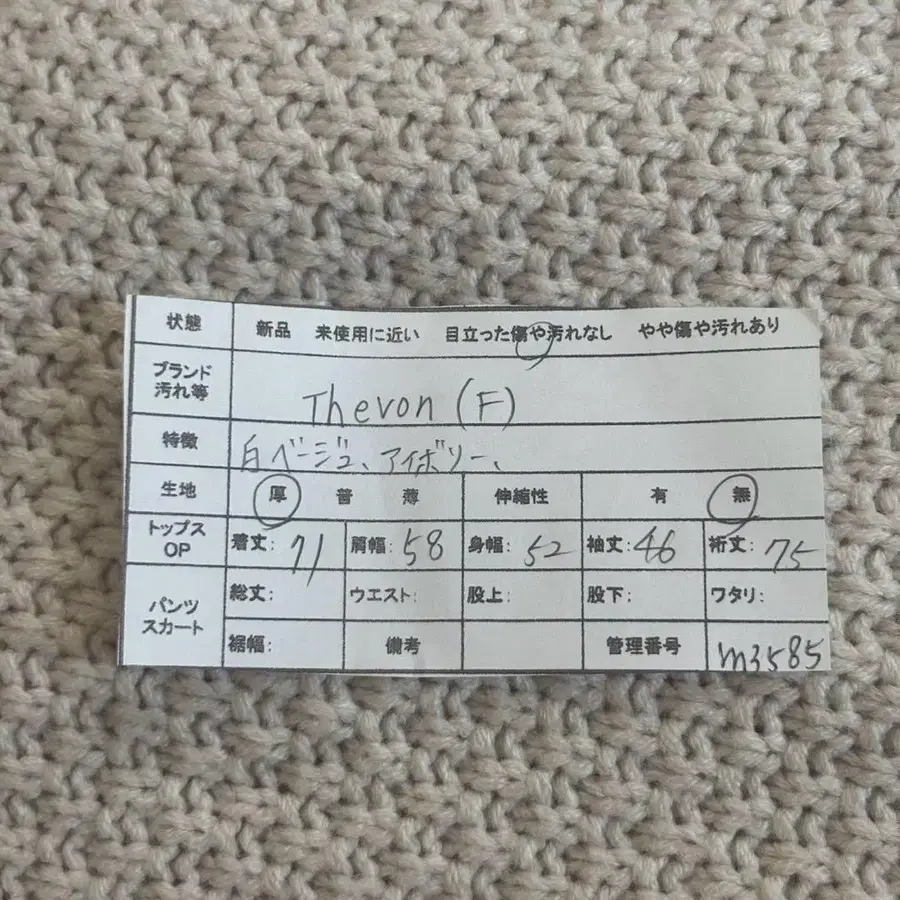 状態 新品 未使用に近い 目立った傷や汚れなし やや傷や汚れあり
ブランド
汚れ等
Thevon (F)
特徴 白ベージュ、アイボリー、
生地 厚 普 薄 伸縮性 有 無
トップス
OP
着丈: 71 肩幅: 58 身幅: 52 袖丈: 46 裄丈: 75
パンツ
スカート
総丈: ウエスト: 股上: 股下: ワタリ:
裾幅: 備考 管理番号 m3585